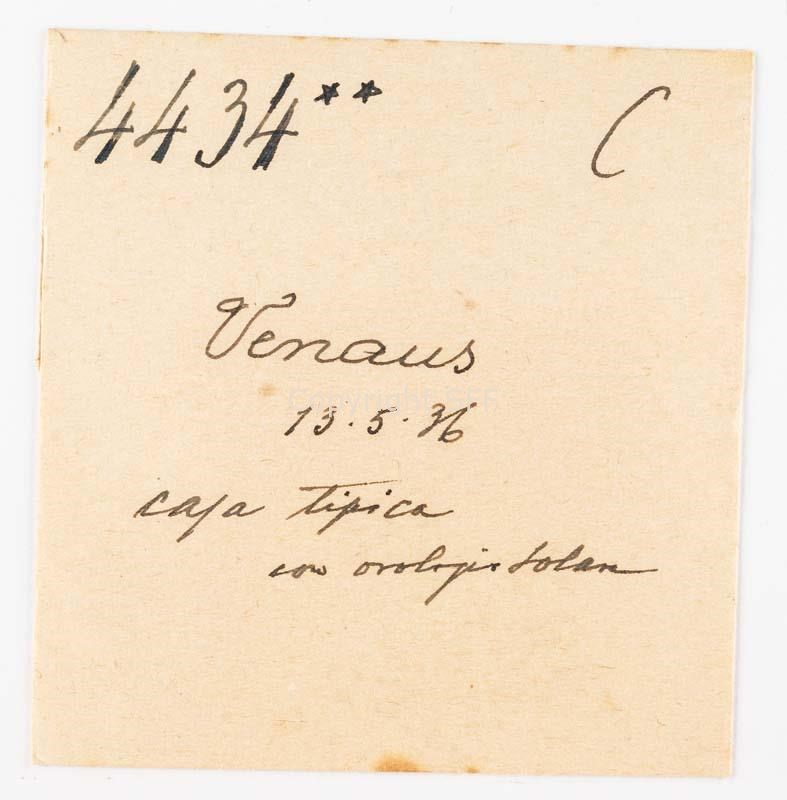 4434** C
Venaus
13.5.36
casa tipica
con orologio solare